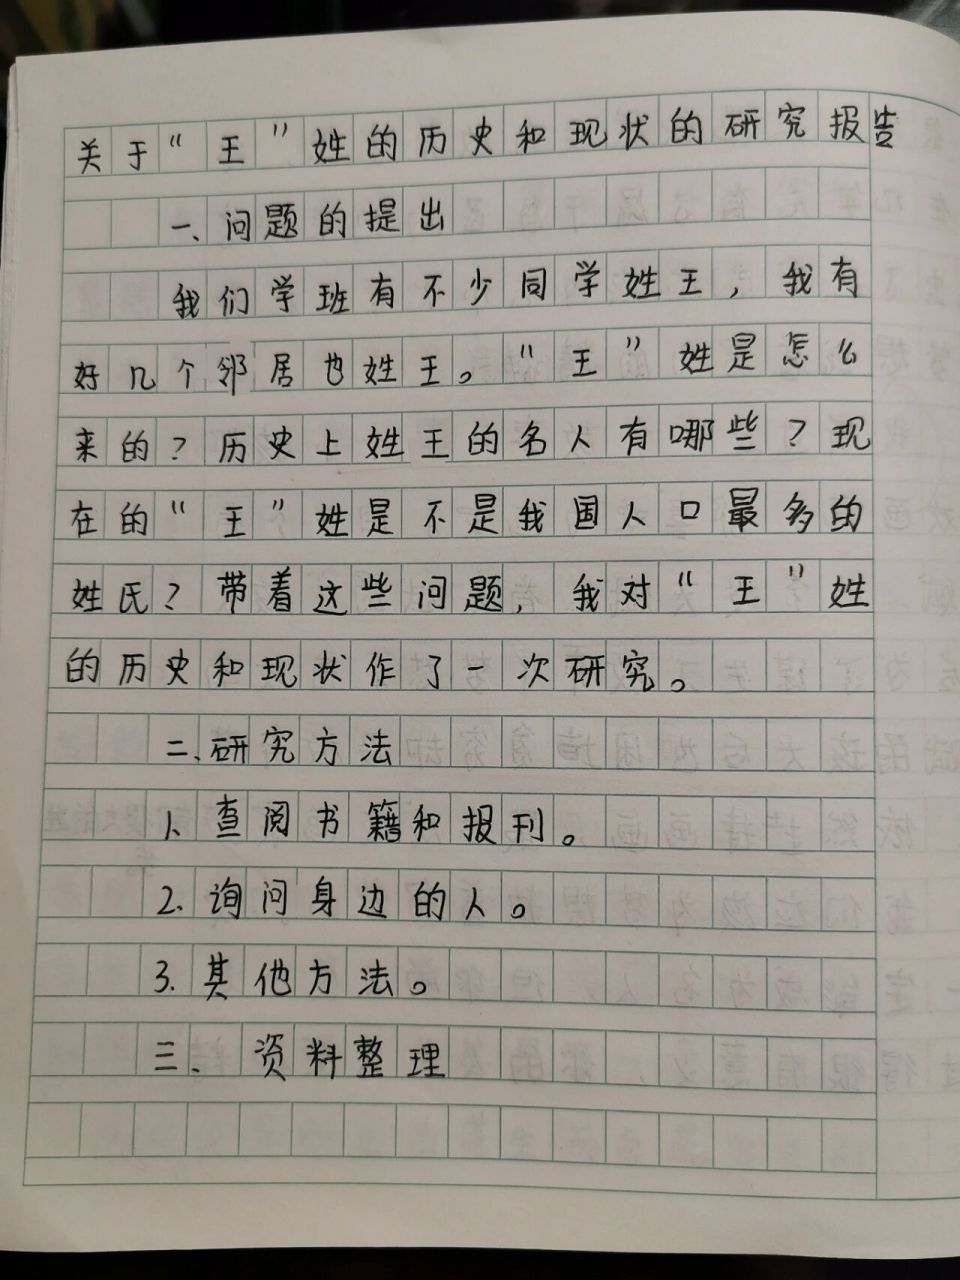 关于“王”姓的历史和现状的研究报告
一、问题的提出
我们学班有不少同学姓王，我有
好几个邻居也姓王。“王”姓是怎么
来的？历史上姓王的名人有哪些？现
在的“王”姓是不是我国人口最多的
姓氏？带着这些问题，我对“王”姓
的历史和现状作了一次研究。
二、研究方法
1、查阅书籍和报刊。
2.询问身边的人。
3.其他方法。
三、资料整理